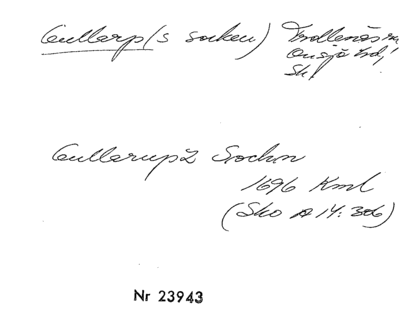 Gullarp (s socken) Trollenäs sn
Onsjö hd
Sk.
Gullarupz Sochn
1696 Kml
(Sko A 14: 306)
Nr 23943